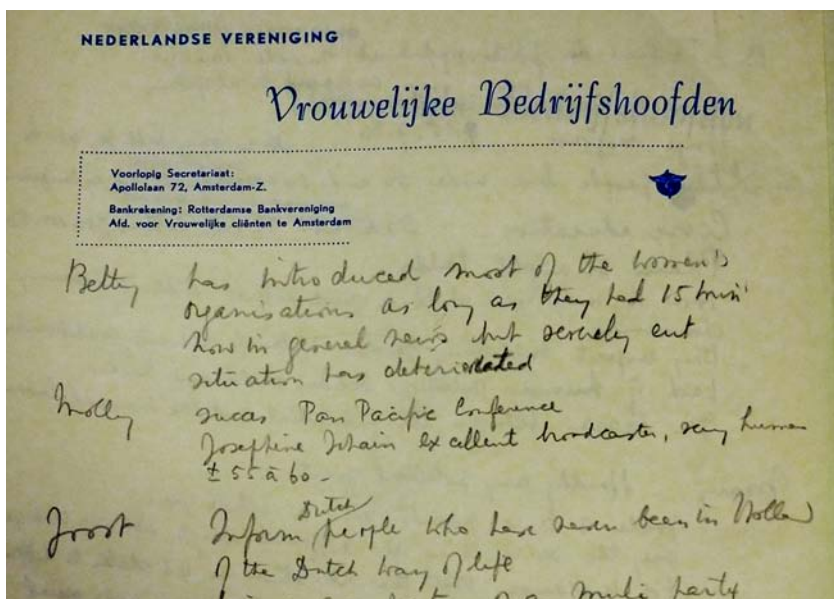 NEDERLANDSE VERENIGING
Vrouwelijke Bedrijfshoofden
Voorlopig Secretariaat:
Apollolaan 72, Amsterdam-Z.
Bankrekening: Rotterdamse Bankvereniging
Afd. voor Vrouwelijke cliënten te Amsterdam
Betty has introduced most of the women's
organisations as long as they had 15 min'
now in general news but severely cut
situation has deteriorated
Molly succes Pan Pacific Conference
Josephine Schain excellent broadcaster, very human
± 55 à 60 -
Dutch
Joost Inform people who have never been in Holland
of the Dutch way of life
party